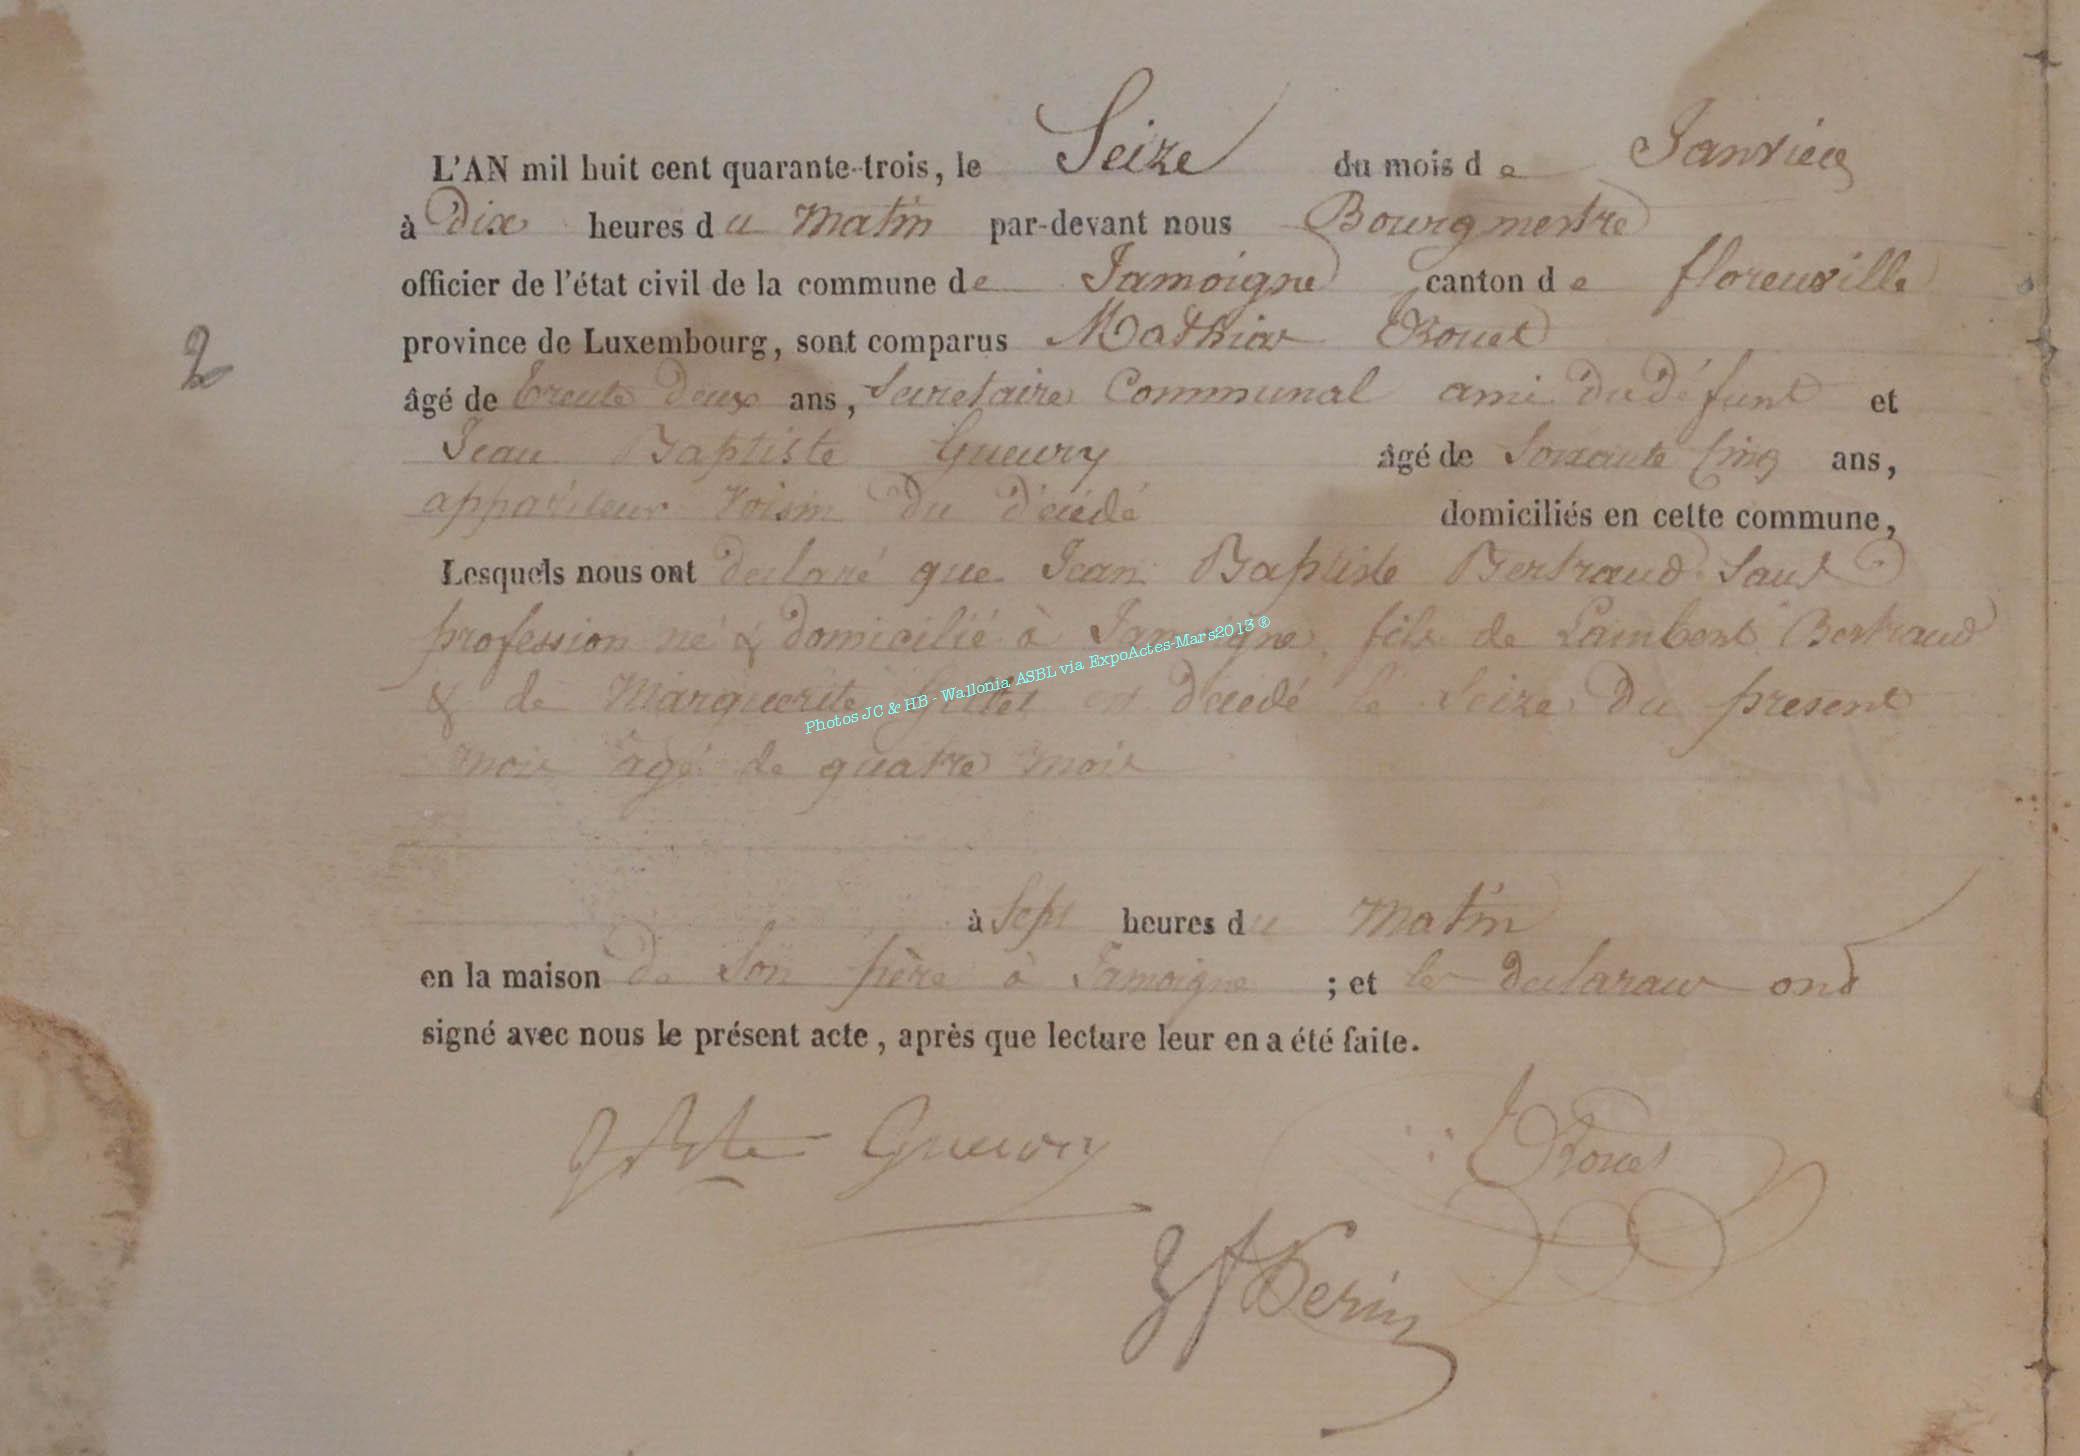 L'AN mil huit cent quarante-trois, le Seize du mois de Janvier
à Dix heures du Matin par-devant nous Bourgmestre
officier de l'état civil de la commune de Jamoigne canton de florenville
province de Luxembourg, sont comparus Mathieu Rouet
2
âgé de trente deux ans, Secretaire Communal ami du défunt et
Jean Baptiste Gueury âgé de Soixante Cinq ans,
appariteur Voisin du décédé domiciliés en cette commune,
Lesquels nous ont declaré que Jean Baptiste Bertrand Sans
profession né & domicilié à Jamoigne, fils de Lambert Bertrand
& de Marguerite Gillet est décédé le Seize du present
Photos JC & HB - Wallonia ASBL via ExpoActes-Mars2013 ®
mois agé de quatre mois
à Sept heures du Matin
en la maison de Son père à Jamoigne ; et les declarans ont
signé avec nous le présent acte, après que lecture leur en a été faite.
Gueury Rouet
Perin